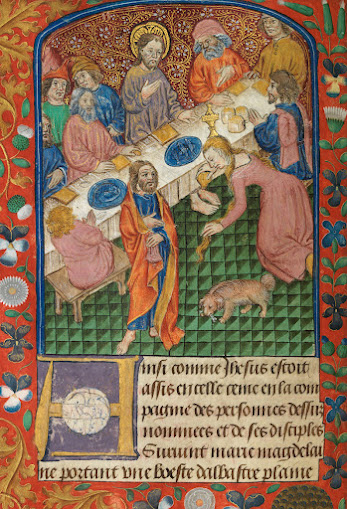 Ainsi comme Jhesus estoit
assis en celle cene en la com
paignie des personnes dessus
nommees et de ses disciples
Suruint marie magdelai
ne portant vne boeste dalbastre plaine